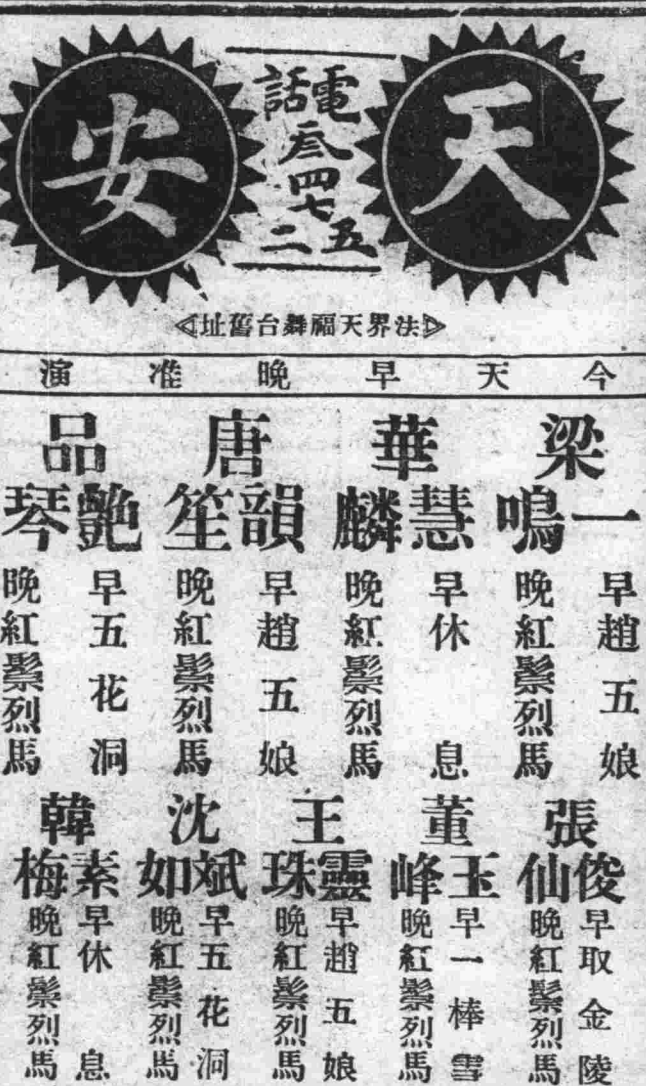 天安
電話
叁四七五二
法界天福舞台舊址
今天早晚准演
梁一鳴
早趙五娘
晚紅鬃烈馬
華慧麟
早休息
晚紅鬃烈馬
唐韻笙
早趙五娘
晚紅鬃烈馬
品艷琴
早五花洞
晚紅鬃烈馬
張俊仙
早取金陵
晚紅鬃烈馬
董玉峰
早一棒雪
晚紅鬃烈馬
王靈珠
早趙五娘
晚紅鬃烈馬
沈斌如
早五花洞
晚紅鬃烈馬
韓素梅
早休息
晚紅鬃烈馬